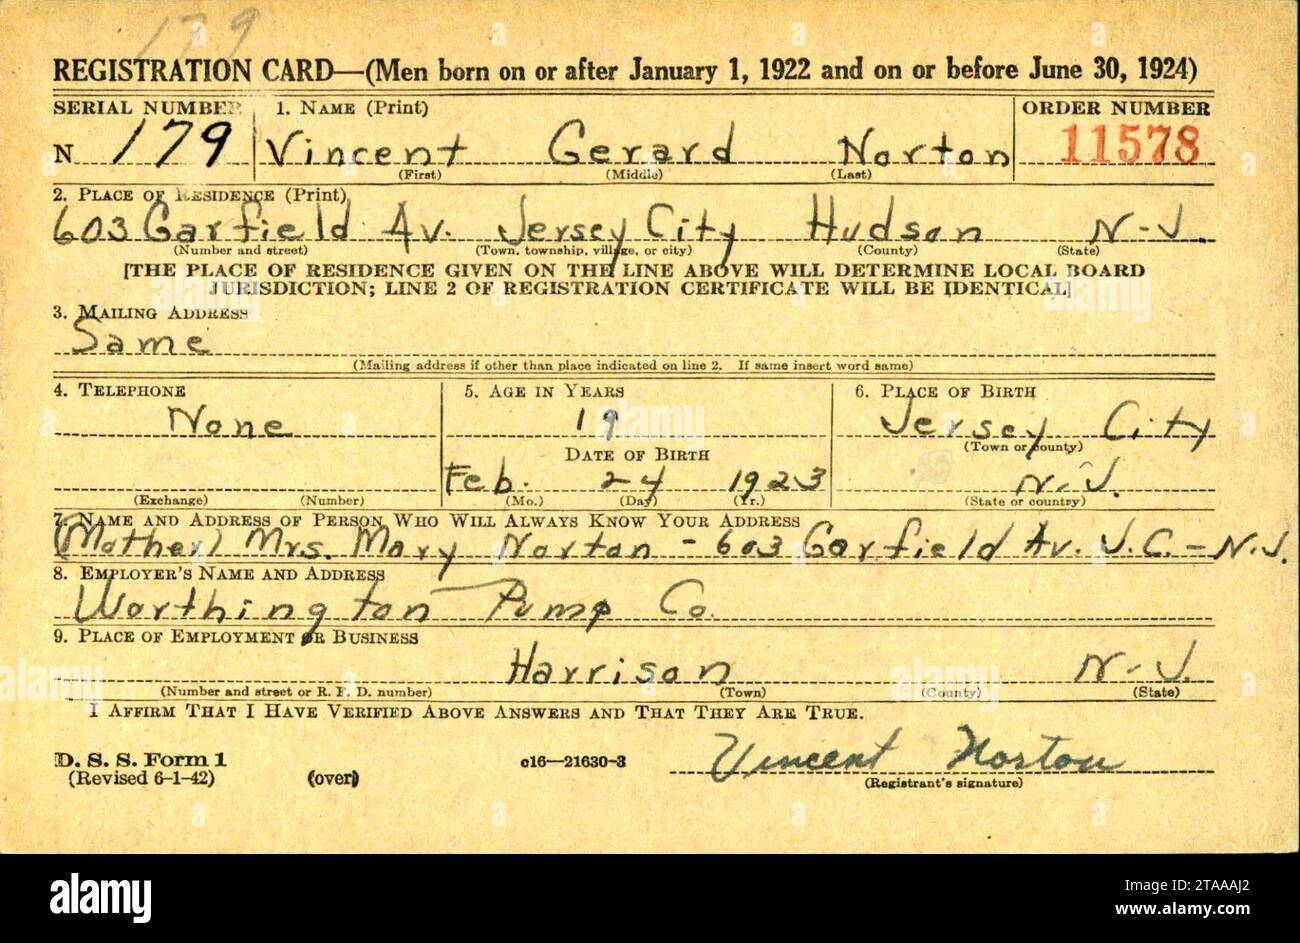 179
REGISTRATION CARD—(Men born on or after January 1, 1922 and on or before June 30, 1924)
SERIAL NUMBER 1. NAME (Print) ORDER NUMBER
N 179 Vincent Gerard Norton 11578
(First) (Middle) (Last)
2. PLACE OF RESIDENCE (Print)
603 Garfield Av. Jersey City Hudson N-J.
(Number and street) (Town, township, village, or city) (County) (State)
[THE PLACE OF RESIDENCE GIVEN ON THE LINE ABOVE WILL DETERMINE LOCAL BOARD
JURISDICTION; LINE 2 OF REGISTRATION CERTIFICATE WILL BE IDENTICAL]
3. MAILING ADDRESS
Same
(Mailing address if other than place indicated on line 2. If same insert word same)
4. TELEPHONE 5. AGE IN YEARS 6. PLACE OF BIRTH
None 19 Jersey City
DATE OF BIRTH (Town or county)
Feb. 24 1923 N-J.
(Exchange) (Number) (Mo.) (Day) (Yr.) (State or country)
7. NAME AND ADDRESS OF PERSON WHO WILL ALWAYS KNOW YOUR ADDRESS
(Mother) Mrs. Mary Norton - 603 Garfield Av. J.C. - N.J.
8. EMPLOYER'S NAME AND ADDRESS
Worthington Pump Co.
9. PLACE OF EMPLOYMENT OR BUSINESS
Harrison N-J.
(Number and street or R. F. D. number) (Town) (County) (State)
I AFFIRM THAT I HAVE VERIFIED ABOVE ANSWERS AND THAT THEY ARE TRUE.
D. S. S. Form 1
(Revised 6-1-42) (over) c16—21630-3 Vincent Norton
(Registrant's signature)
alamy
Image ID: 2TAAAJ2
www.alamy.com